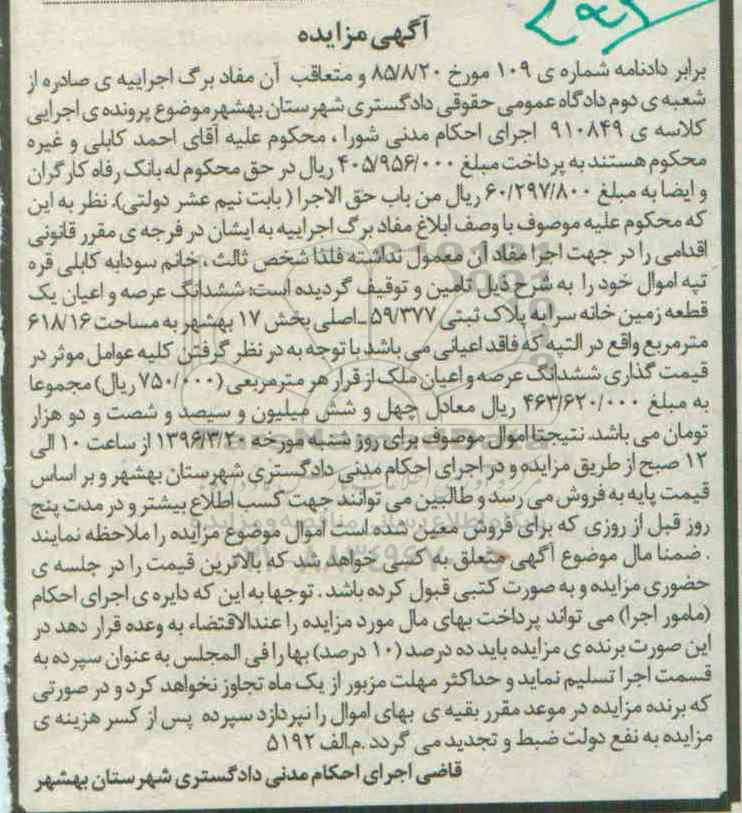 آگهی مزایده
برابر دادنامه شماره ی ۱۰۹ مورخ ۸۵/۸/۲۰ و متعاقب آن مفاد برگ اجراییه ی صادره از
شعبه ی دوم دادگاه عمومی حقوقی دادگستری شهرستان بهشهر موضوع پرونده ی اجرایی
کلاسه ی ۹۱۰۸۴۹ اجرای احکام مدنی شورا ، محکوم علیه آقای احمد کابلی و غیره
محکوم هستند به پرداخت مبلغ ۴۰۵/۹۵۶/۰۰۰ ریال در حق محکوم له بانک رفاه کارگران
و ایضا به مبلغ ۶۰/۲۹۷/۸۰۰ ریال من باب حق الاجرا ( بابت نیم عشر دولتی). نظر به این
که محکوم علیه موصوف با وصف ابلاغ مفاد برگ اجراییه به ایشان در فرجه ی مقرر قانونی
اقدامی را در جهت اجرا مفاد آن معمول نداشته فلذا شخص ثالث ، خانم سودابه کابلی قره
تپه اموال خود را به شرح ذیل تامین و توقیف گردیده است: ششدانگ عرصه و اعیان یک
قطعه زمین خانه سرا به پلاک ثبتی ۵۹/۳۷۷ ـ اصلی بخش ۱۷ بهشهر به مساحت ۶۱۸/۱۶
مترمربع واقع در التپه که فاقد اعیانی می باشد با توجه به در نظر گرفتن کلیه عوامل موثر در
قیمت گذاری ششدانگ عرصه و اعیان ملک از قرار هر مترمربعی (۷۵۰/۰۰۰ ریال) مجموعا
به مبلغ ۴۶۳/۶۲۰/۰۰۰ ریال معادل چهل و شش میلیون و سیصد و شصت و دو هزار
تومان می باشد. نتیجتا اموال موصوف برای روز شنبه مورخه ۱۳۹۶/۳/۲۰ از ساعت ۱۰ الی
۱۲ صبح از طریق مزایده و در اجرای احکام مدنی دادگستری شهرستان بهشهر و بر اساس
قیمت پایه به فروش می رسد و طالبین می توانند جهت کسب اطلاع بیشتر و در مدت پنج
روز قبل از روزی که برای فروش معین شده است اموال موضوع مزایده را ملاحظه نمایند
. ضمنا مال موضوع آگهی متعلق به کسی خواهد شد که بالاترین قیمت را در جلسه ی
حضوری مزایده و به صورت کتبی قبول کرده باشد . توجها به این که دایره ی اجرای احکام
(مامور اجرا) می تواند پرداخت بهای مال مورد مزایده را عندالاقتضاء به وعده قرار دهد در
این صورت برنده ی مزایده باید ده درصد (۱۰ درصد) بها را فی المجلس به عنوان سپرده به
قسمت اجرا تسلیم نماید و حداکثر مهلت مزبور از یک ماه تجاوز نخواهد کرد و در صورتی
که برنده مزایده در موعد مقرر بقیه ی بهای اموال را نپردازد سپرده پس از کسر هزینه ی
مزایده به نفع دولت ضبط و تجدید می گردد .م.الف ۵۱۹۲
قاضی اجرای احکام مدنی دادگستری شهرستان بهشهر